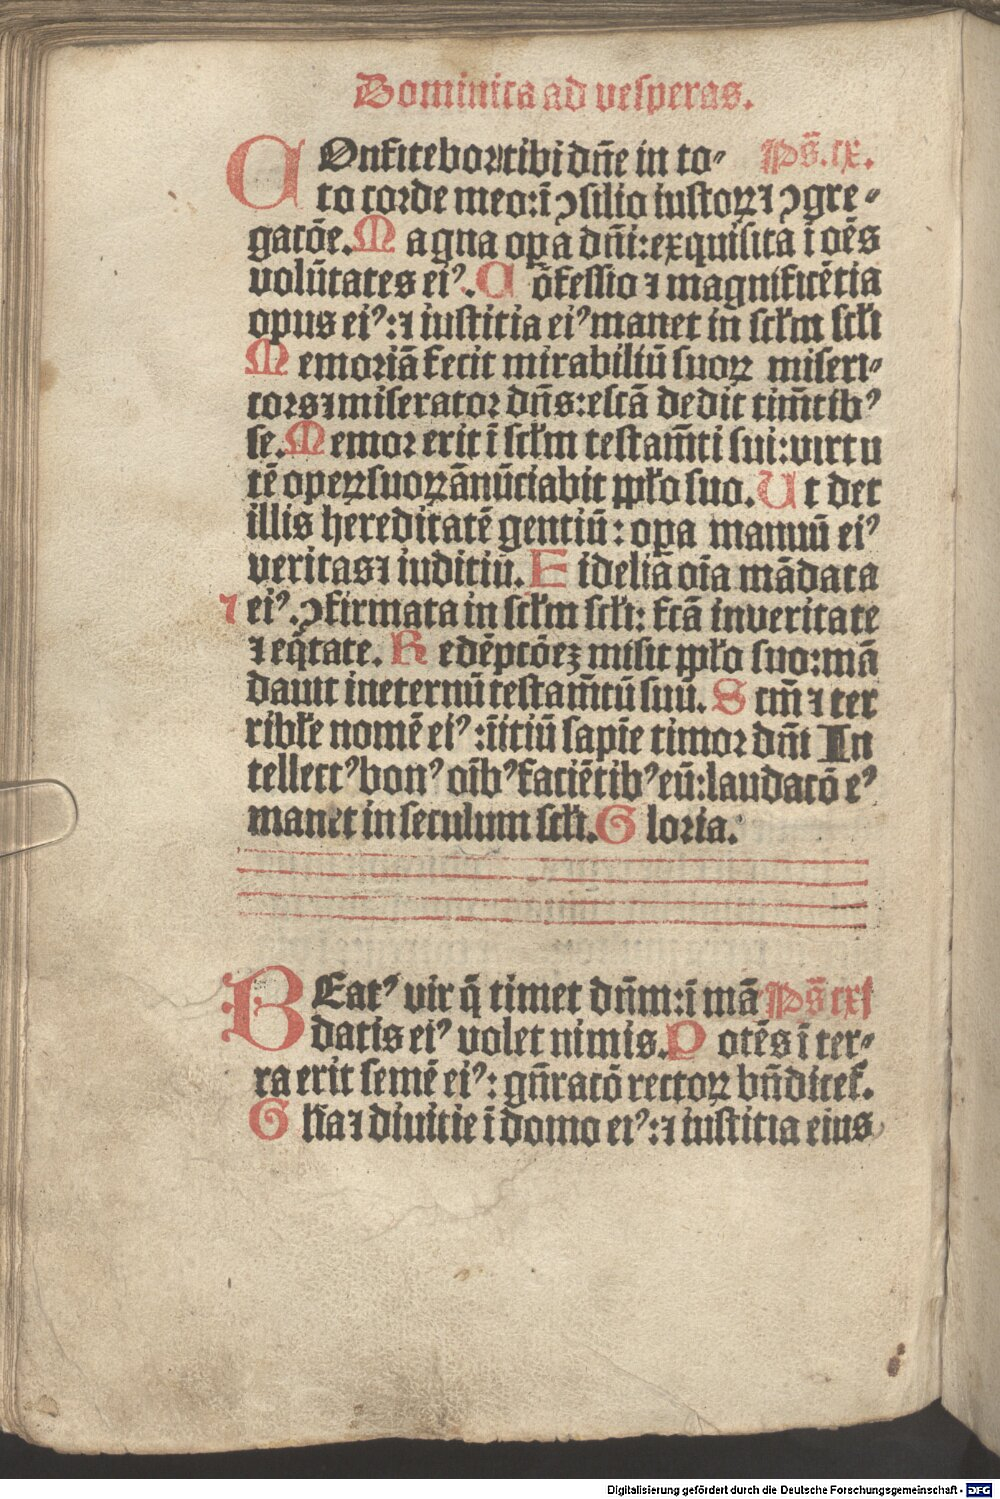 Dominica ad vesperas.
COnfitebor tibi dn̄e in to⸗ Ps̄.cx.
to corde meo:ī ↄsilio iustoꝝ ⁊ ↄgre⸗
gatōe. Magna oꝑa dn̄i:exquisita ī oēs
volūtates eiꝰ. Cōfessio ⁊ magnificētia
opus eiꝰ:⁊ iusticia eiꝰ manet in scł'm scł'i
Memoriā fecit mirabiliū suoꝝ miseri⸗
cors ⁊ miserator dn̄s:escā dedit tim̄tibꝰ
se. Memor erit ī scł'm testam̄ti sui:virtu
tē oꝑeꝝ suoꝝ ānūciabit ppł'o suo. Ut det
illis hereditatē gentiū: oꝑa manuū eiꝰ
veritas ⁊ iudiciū. Fidelia oīa mādata
⁊ eiꝰ. ↄfirmata in scł'm scł'i: fcā in veritate
⁊ eq̄tate. Redēptōeꝫ misit ppł'o suo:mā
dauit in eternū testam̄tū suū. Sctm̄ ⁊ ter
ribł'e nomē eiꝰ:īn̄itiū sapīe timor dn̄i In
tellectꝰ bonꝰ oīb' faciētibꝰ eū:laudatō eꝰ
manet in seculum scł'i. Gloria.
BEatꝰ vir q̄ timet dn̄m:ī mā Ps̄ cxi
datis eiꝰ volet nimis. Potēs ī ter⸗
ra erit semē eiꝰ: gn̄ratō rectoꝝ bn̄dicet̄.
Glīa ⁊ diuitie ī domo eiꝰ:⁊ iusticia eius
Digitalisierung gefördert durch die Deutsche Forschungsgemeinschaft - DFG